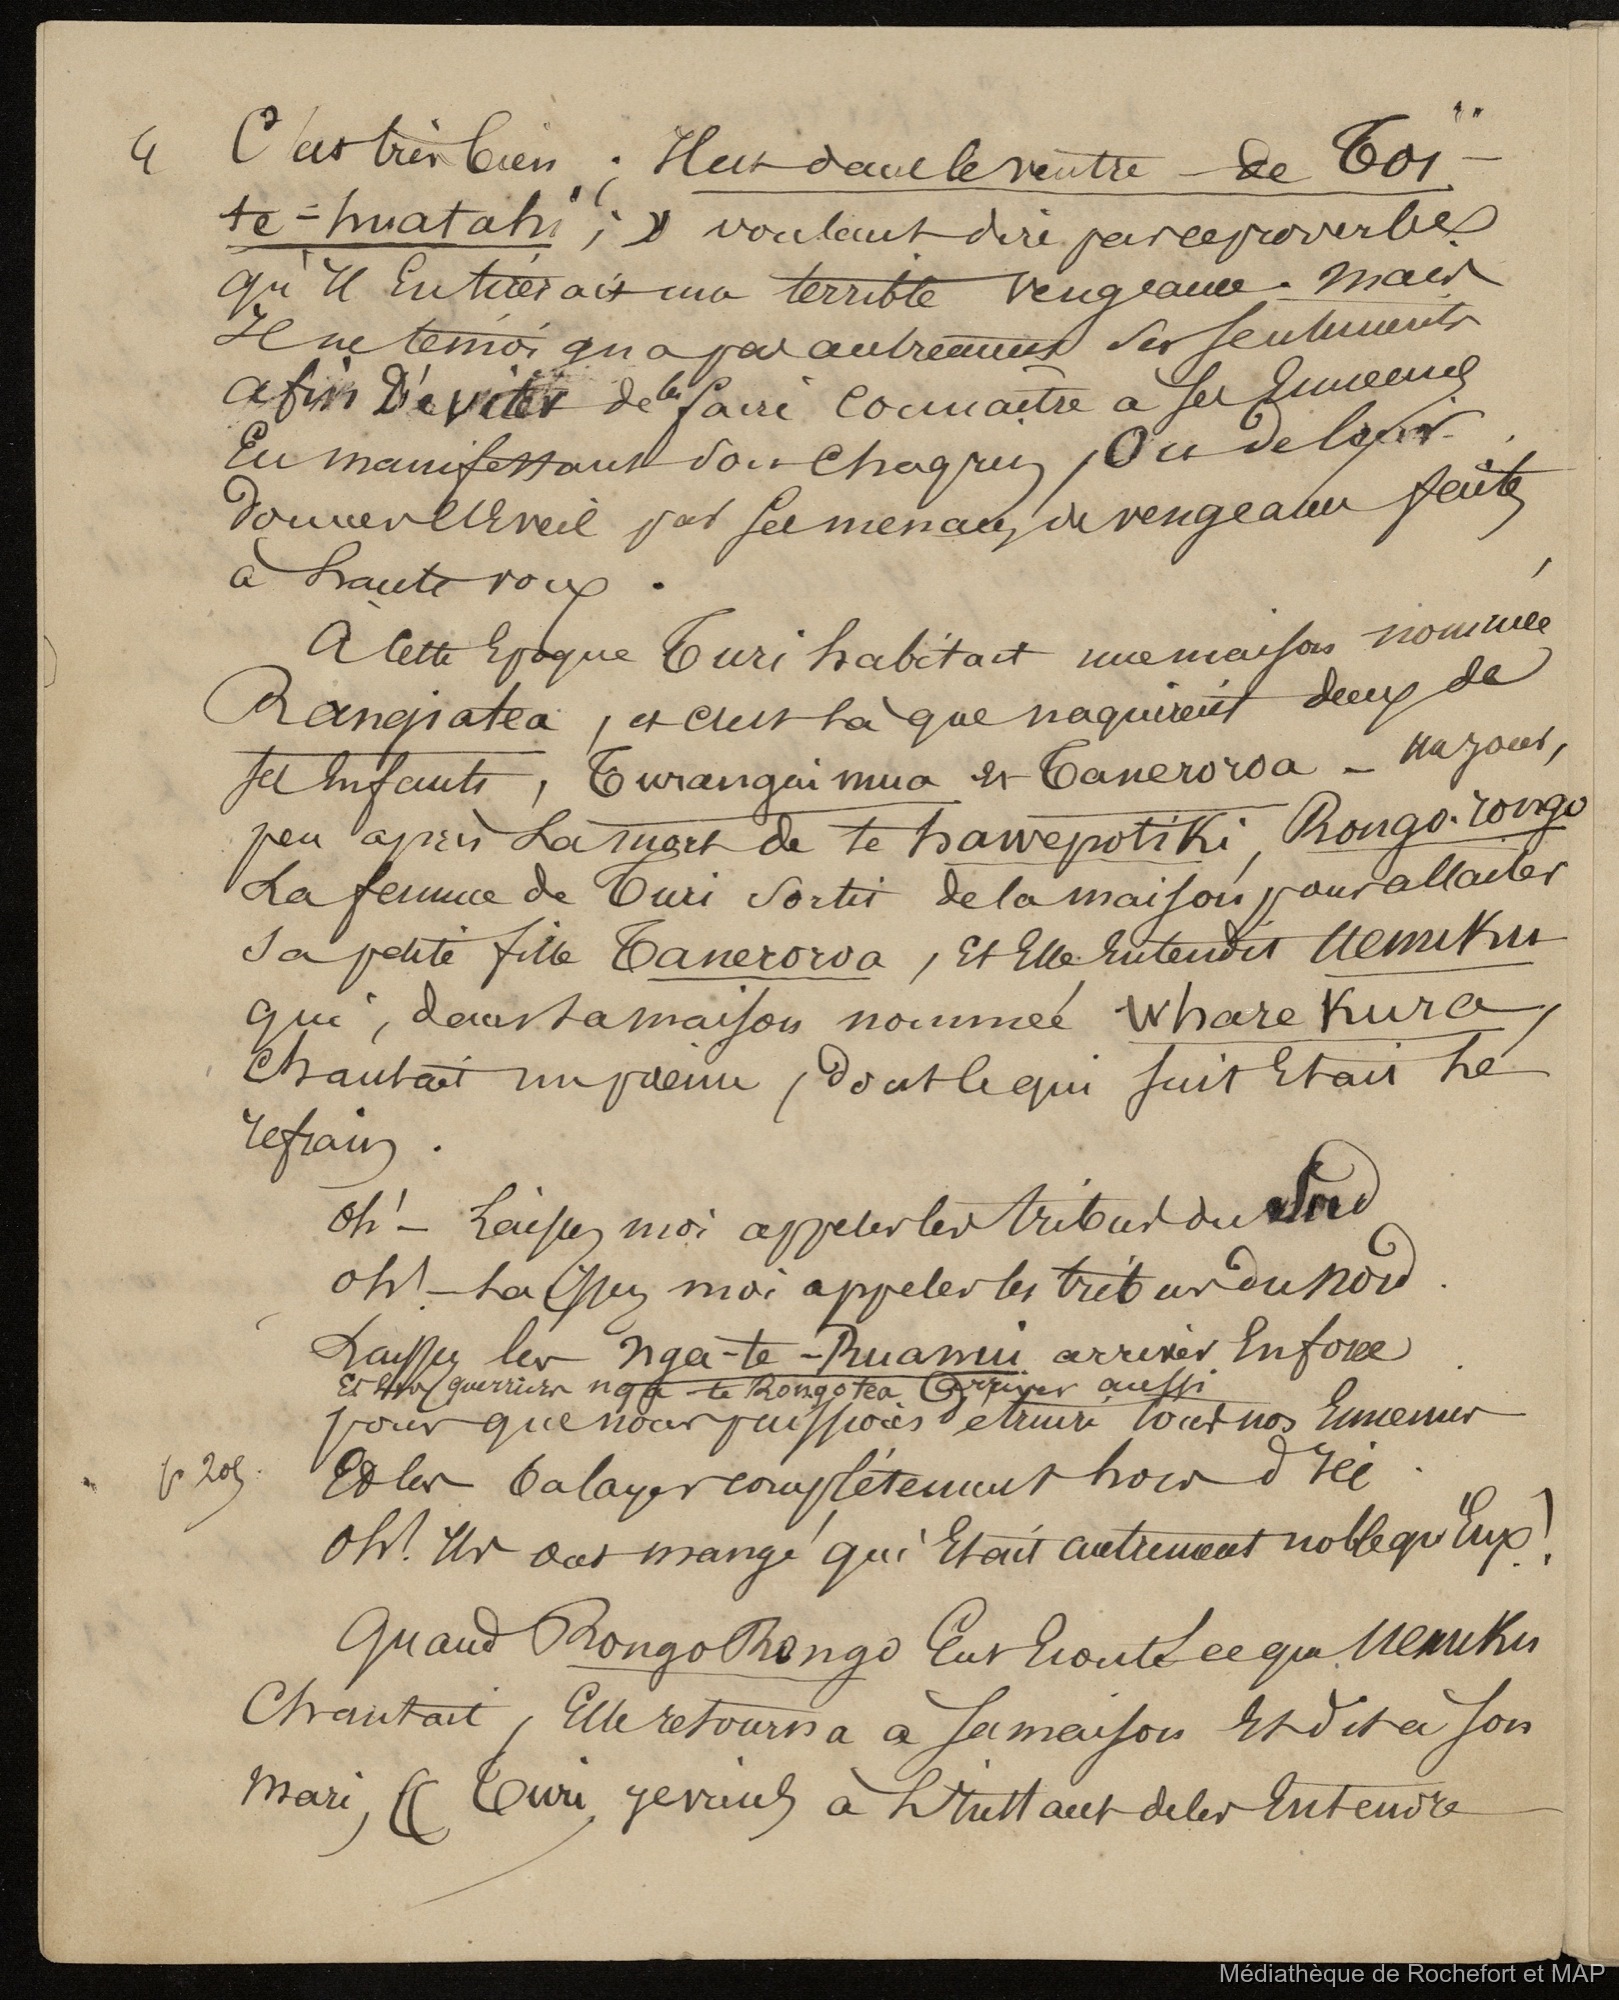 4 C'est très bien ; Il est dans le ventre de Toï-
te-huatahi ; » voulant dire par ce proverbe
qu'il En tirerait une terrible vengeance. Mais
Il ne témoigna pas autrement ses sentiments
afin D'éviter de les faire connaître à ses Ennemis
En manifestant son chagrin, Ou de leur
donner l'Eveil par ses menaces de vengeance faites
à haute voix.
A Cette Epoque Turi habitait une maison nommée
Rangiatea, et c'est là que naquirent deux de
ses Enfants, Turanguimua et Taneroroa - un jour,
peu après La mort de te hawepotiki, Rongo-rongo
La femme de Turi Sortit de la maison pour allaiter
sa petite fille Taneroroa, Et Elle Entendit Uenuku
qui, dans sa maison nommée Wharekura,
Chantait un poème, dont le qui suit Etait le
refrain.
Oh! - Laissez moi appeler les tribus du Sud
Oh! - Laissez moi appeler les tribus du Nord.
Laissez les Nga-te-Ruanui arriver En force
Et les guerriers nga-te Rongotea arriver aussi
pour que nous puissions détruire tous nos Ennemis
p 209. Et les balayer complètement hors d'Ici.
Oh! Ils ont mangé qui Etait autrement noble qu'Eux!
Quand Rongo Rongo Eut Ecouté ce que Uenuku
Chantait, Elle retourna à sa maison Et dit à son
Mari, « Turi, je viens à L'Instant de les Entendre
Médiathèque de Rochefort et MAP